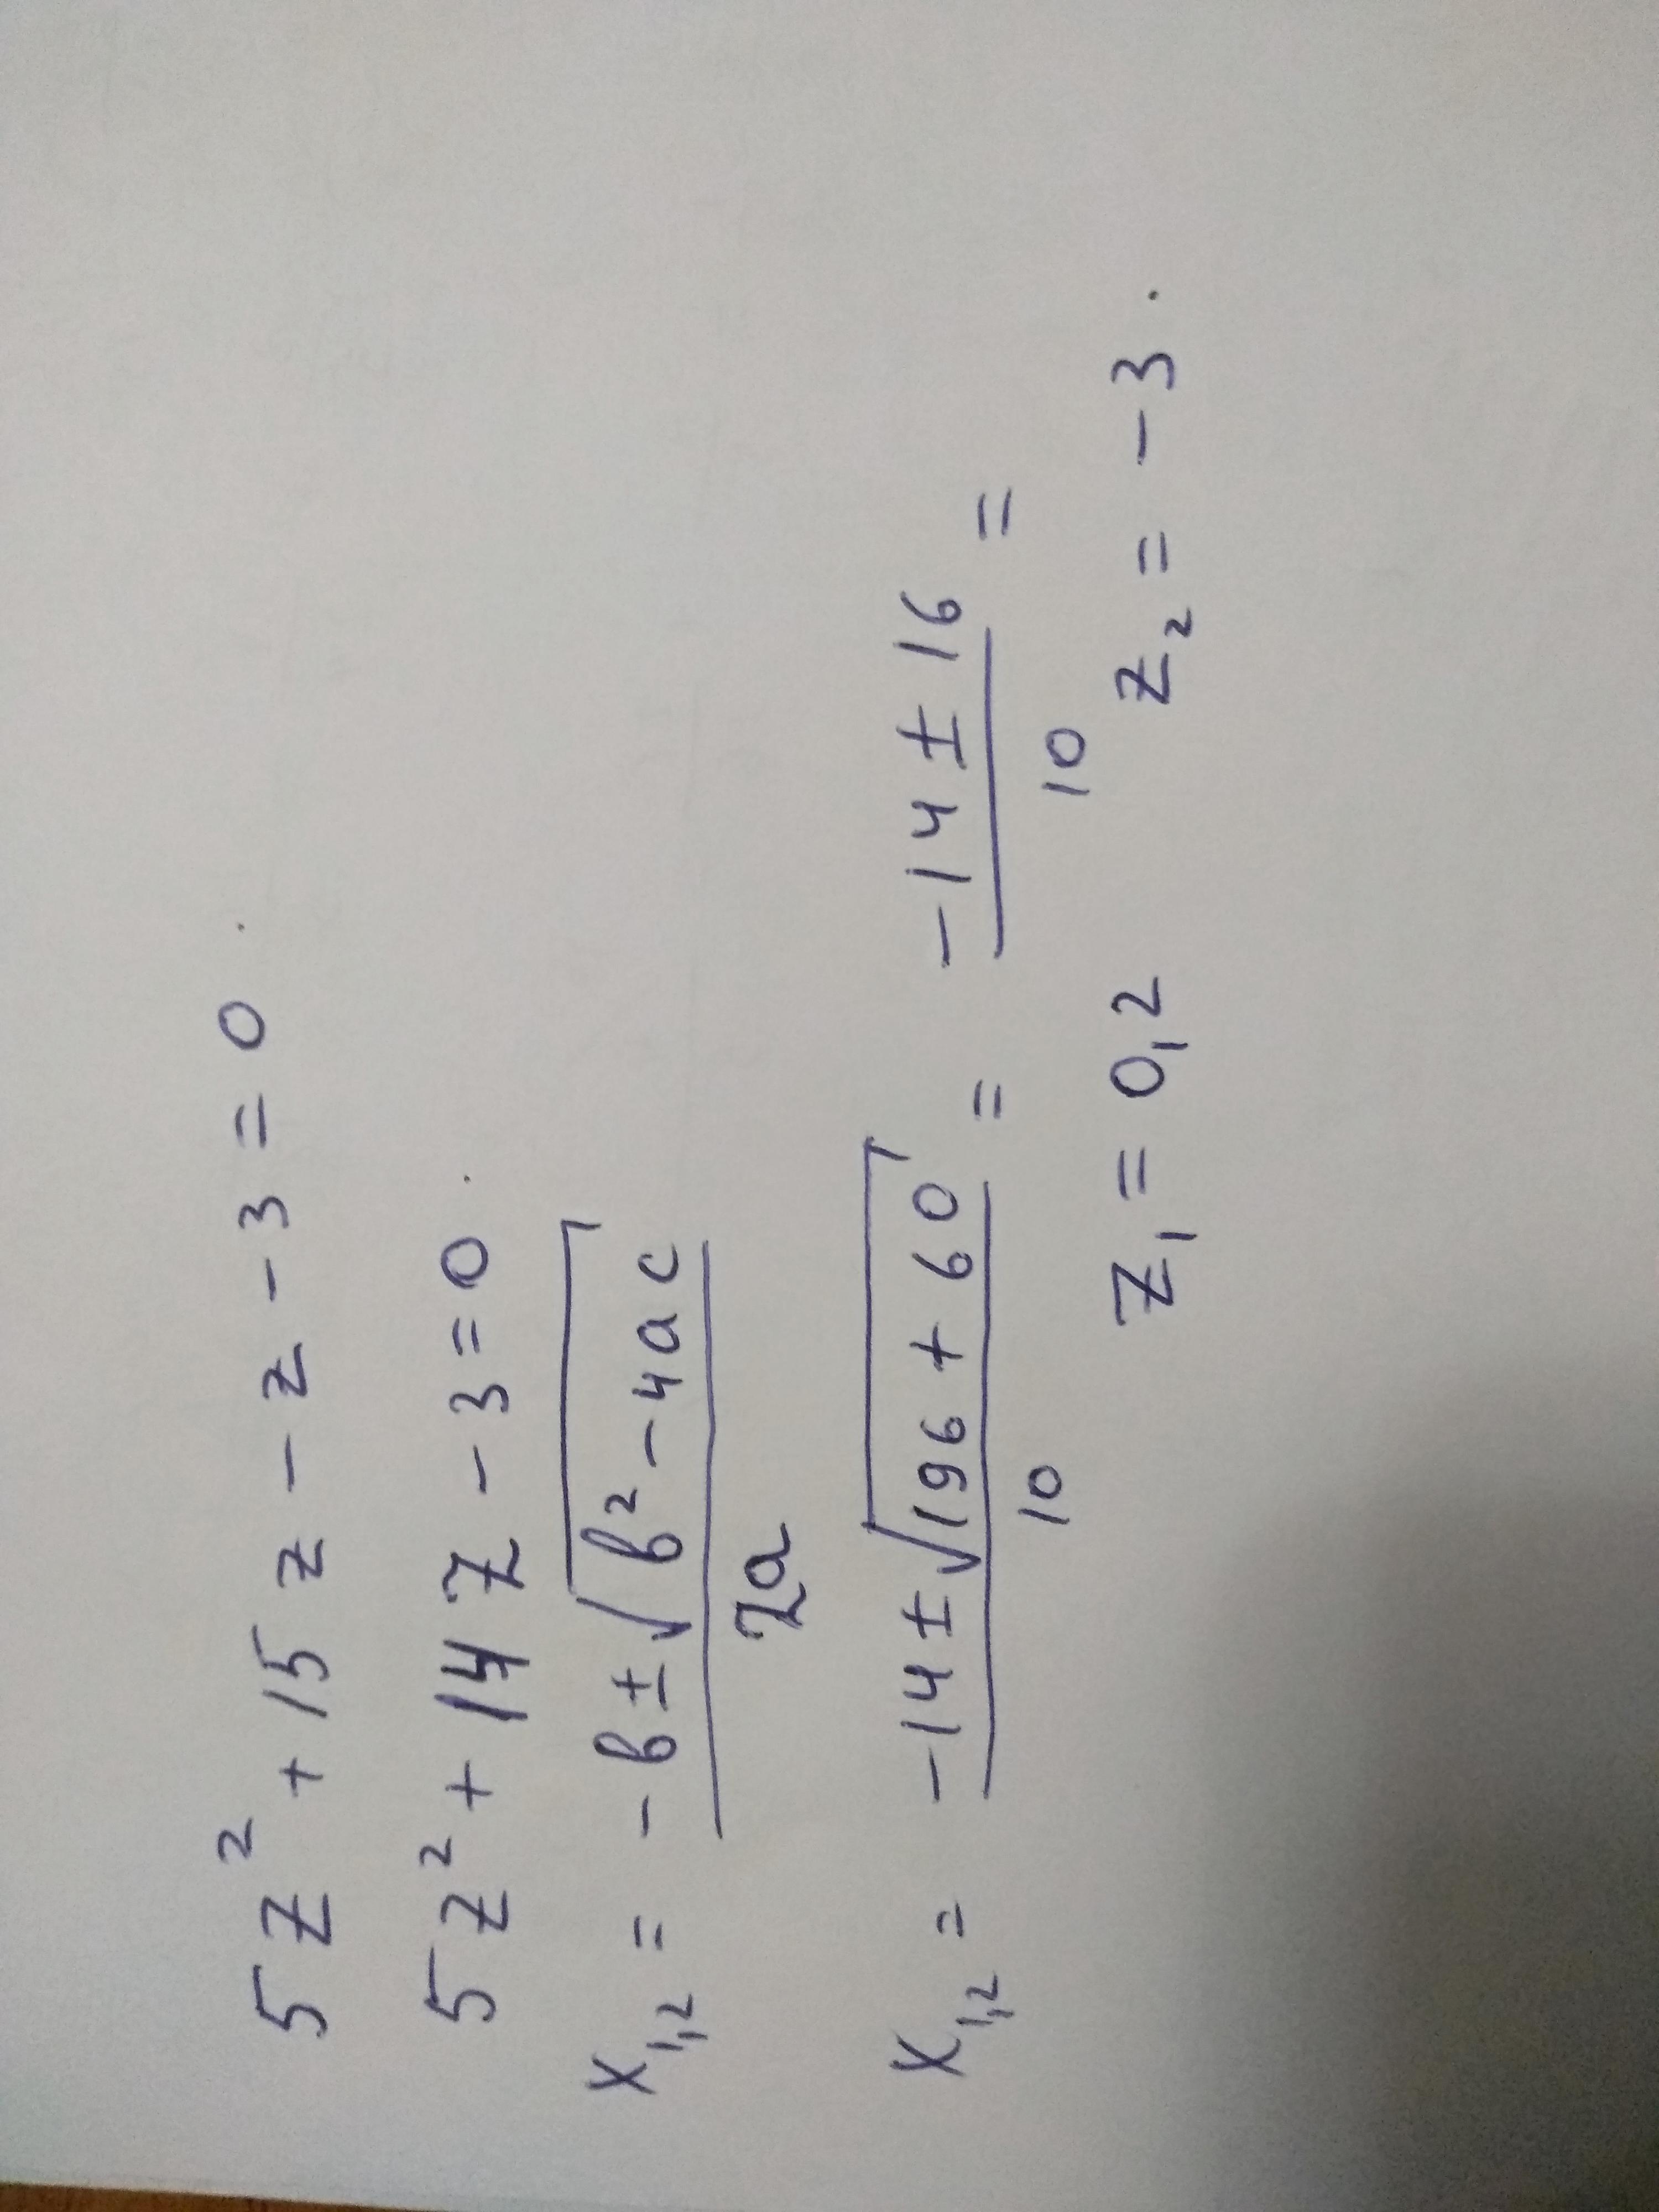 5z² + 15z - z - 3 = 0.
5z² + 14z - 3 = 0.
x₁,₂ = (-в ± √(в² - 4ac)) / 2a
x₁,₂ = (-14 ± √(196 + 60)) / 10 = (-14 ± 16) / 10 =
z₁ = 0,2 z₂ = -3.